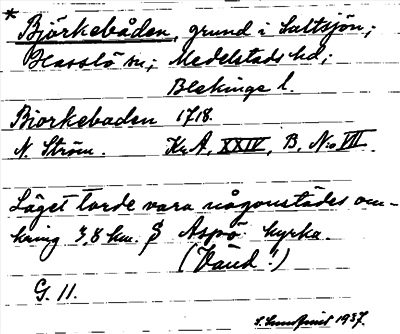 * Björkebåden, grund i Saltsjön;
Hasslö sn; Medelstads hd;
Blekinge l.
Biorkebaden 1718.
N. Ström. Kr. A, XXIV, B, No VII.
Läget torde vara någonstädes om-
kring 3,8 km. S Aspö kyrka.
(Vänd!)
G. 11.
1937.